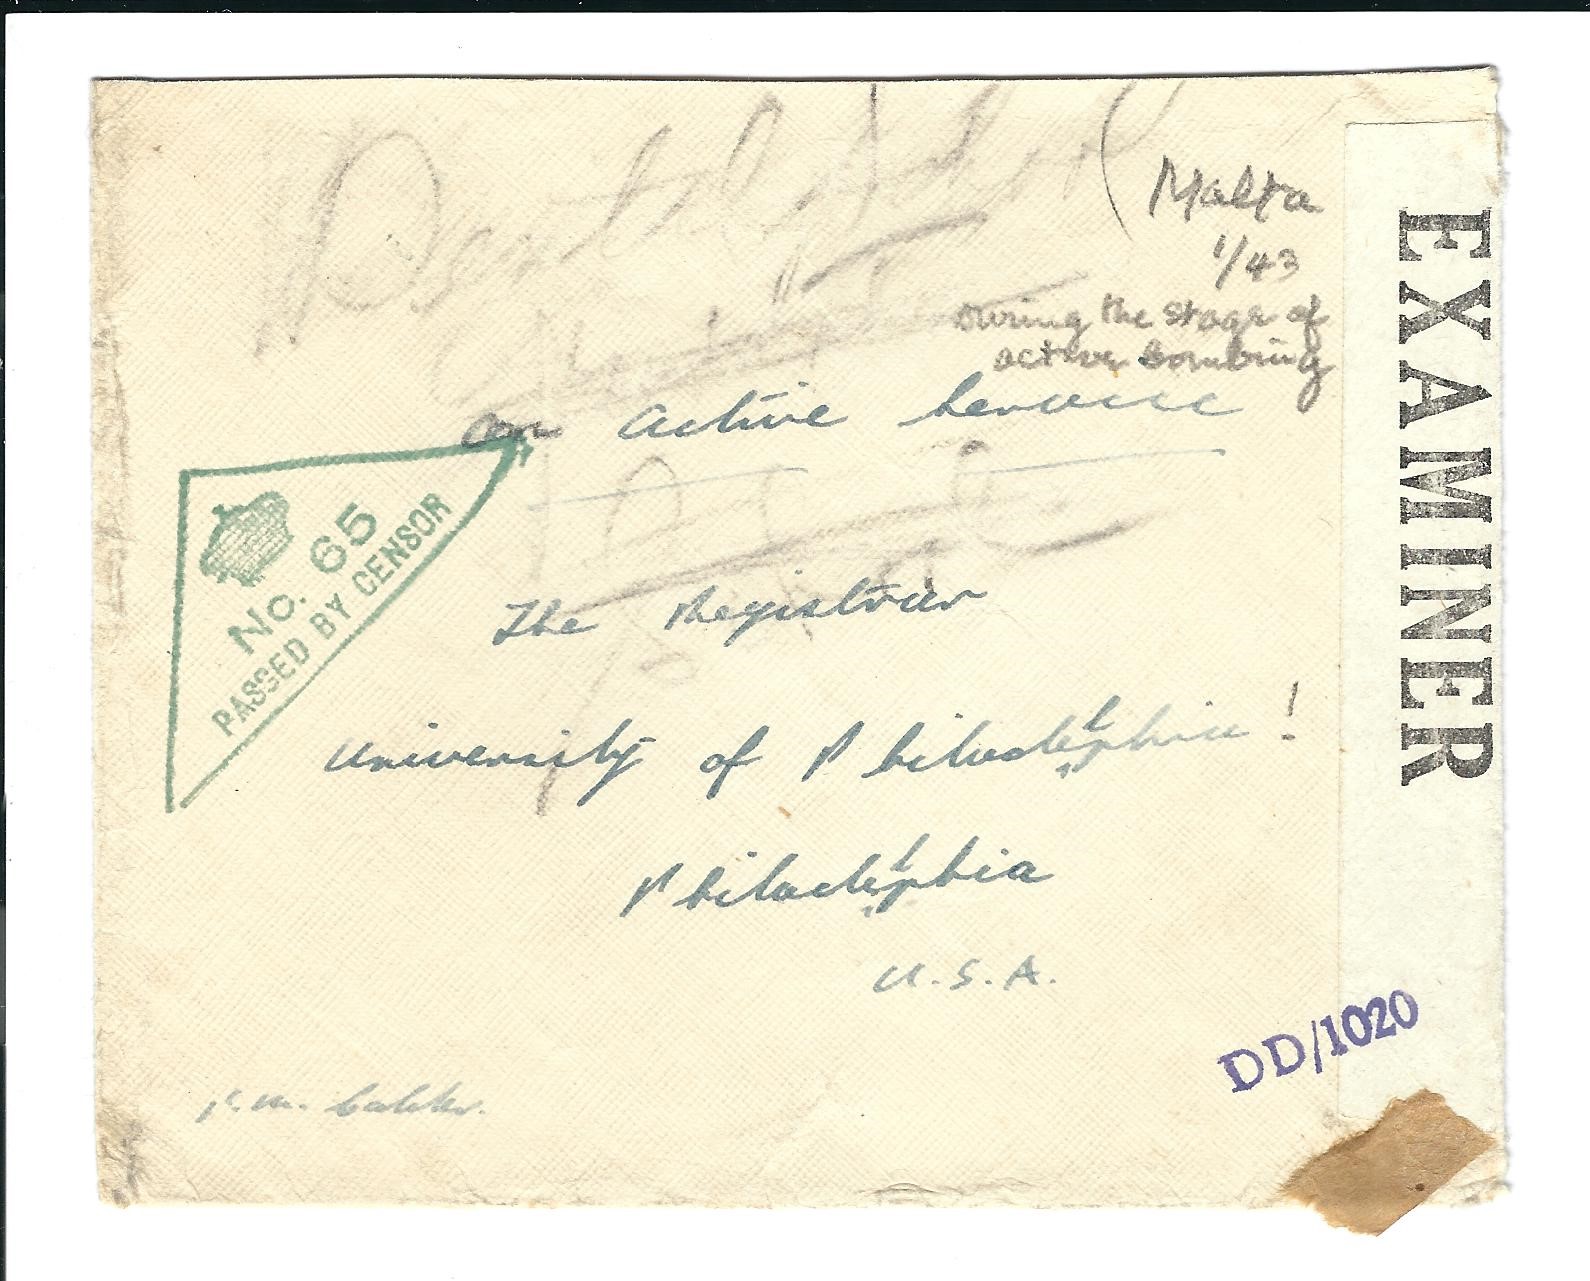 Dental School
Malta
1/43
during the stage of
active bombing
on active service
No. 65
PASSED BY CENSOR
The Registrar
University of Philadelphia!
Philadelphia
U.S.A.
EXAMINER
DD/1020